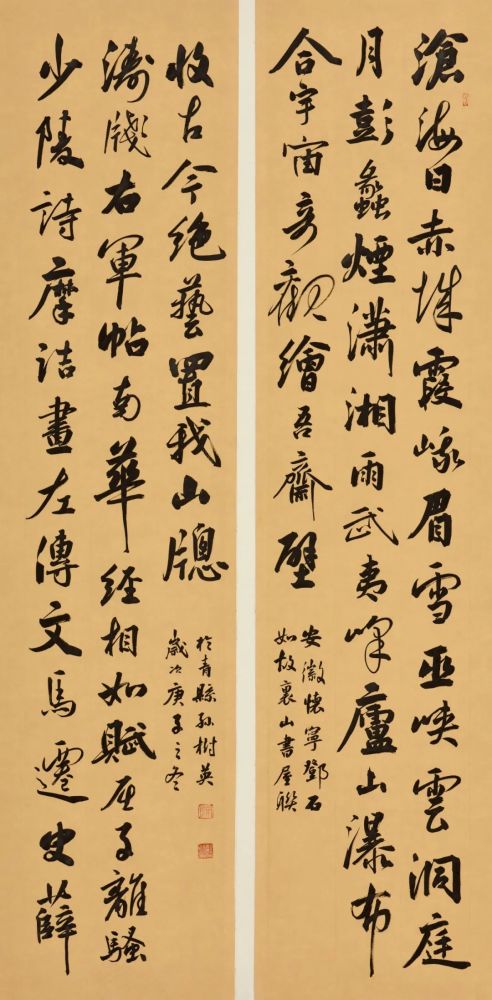 滄海日赤城霞峨眉雪巫峽雲洞庭
月彭蠡煙瀟湘雨武夷峰廬山瀑布
合宇宙奇觀繪吾齋壁
安徽懷寧鄧石
如故裏山書屋聯
少陵詩摩詰畫左傳文馬遷史薛
濤牋右軍帖南華經相如賦屈子離騷
收古今絕藝置我山牕
歲次庚子之冬
於青縣孫樹英